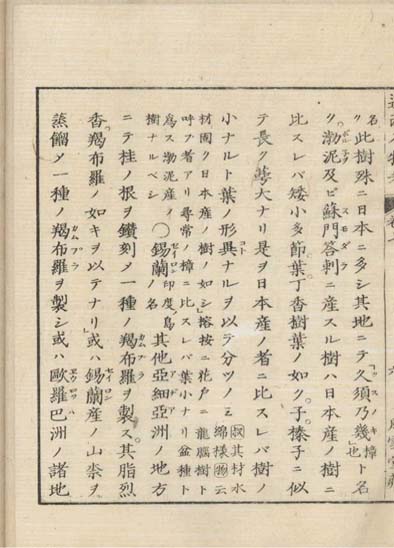 名
此樹殊ニ日本ニ多シ其地ニテ「久須乃幾」樟也ト名
ク。渤泥及ビ蘇門荅剌ニ産スル樹ハ日本産ノ樹ニ
比スレバ矮小多節。葉丁香樹葉ノ如ク。子榛子ニ似
テ長ク大ナリ是ヲ日本産ノ者ニ比スレバ樹ノ
小ナルト葉ノ形異ナルヲ以テ分ツノミ
其材水綿様云
材固ク日本産ノ樹ノ如シ榕按ニ花戸ニ龍腦樹ト
呼ブ者アリ尋常ノ樟ニ比スレバ葉小ナリ盆種ト
爲ス渤泥産ノ樹ナルベシ
〇錫蘭印度ノ島ノ名其他亞細亞洲ノ地方
ニテ桂ノ根ヲ鑽刻メ一種ノ羯布羅ヲ製ス。其脂烈
香羯布羅ノ如キヲ以テナリ」或ハ錫蘭産ノ山柰ヲ
蒸餾メ一種ノ羯布羅ヲ製シ或ハ歐羅巴洲ノ諸地